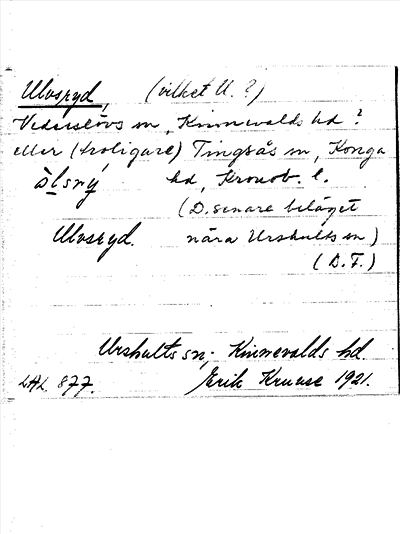 Ulvsryd, (vilket U. ?)
Vederslövs sn, Kinnevalds hd ?
eller (troligare) Tingsås sn, Konga
hd, Kronob. l.
(D. senare beläget
Ulvsryd. nära Urshults sn)
(D.F.)
Urshults sn; Kinnevalds hd.
LAL. 877. Erik Kruuse 1921.